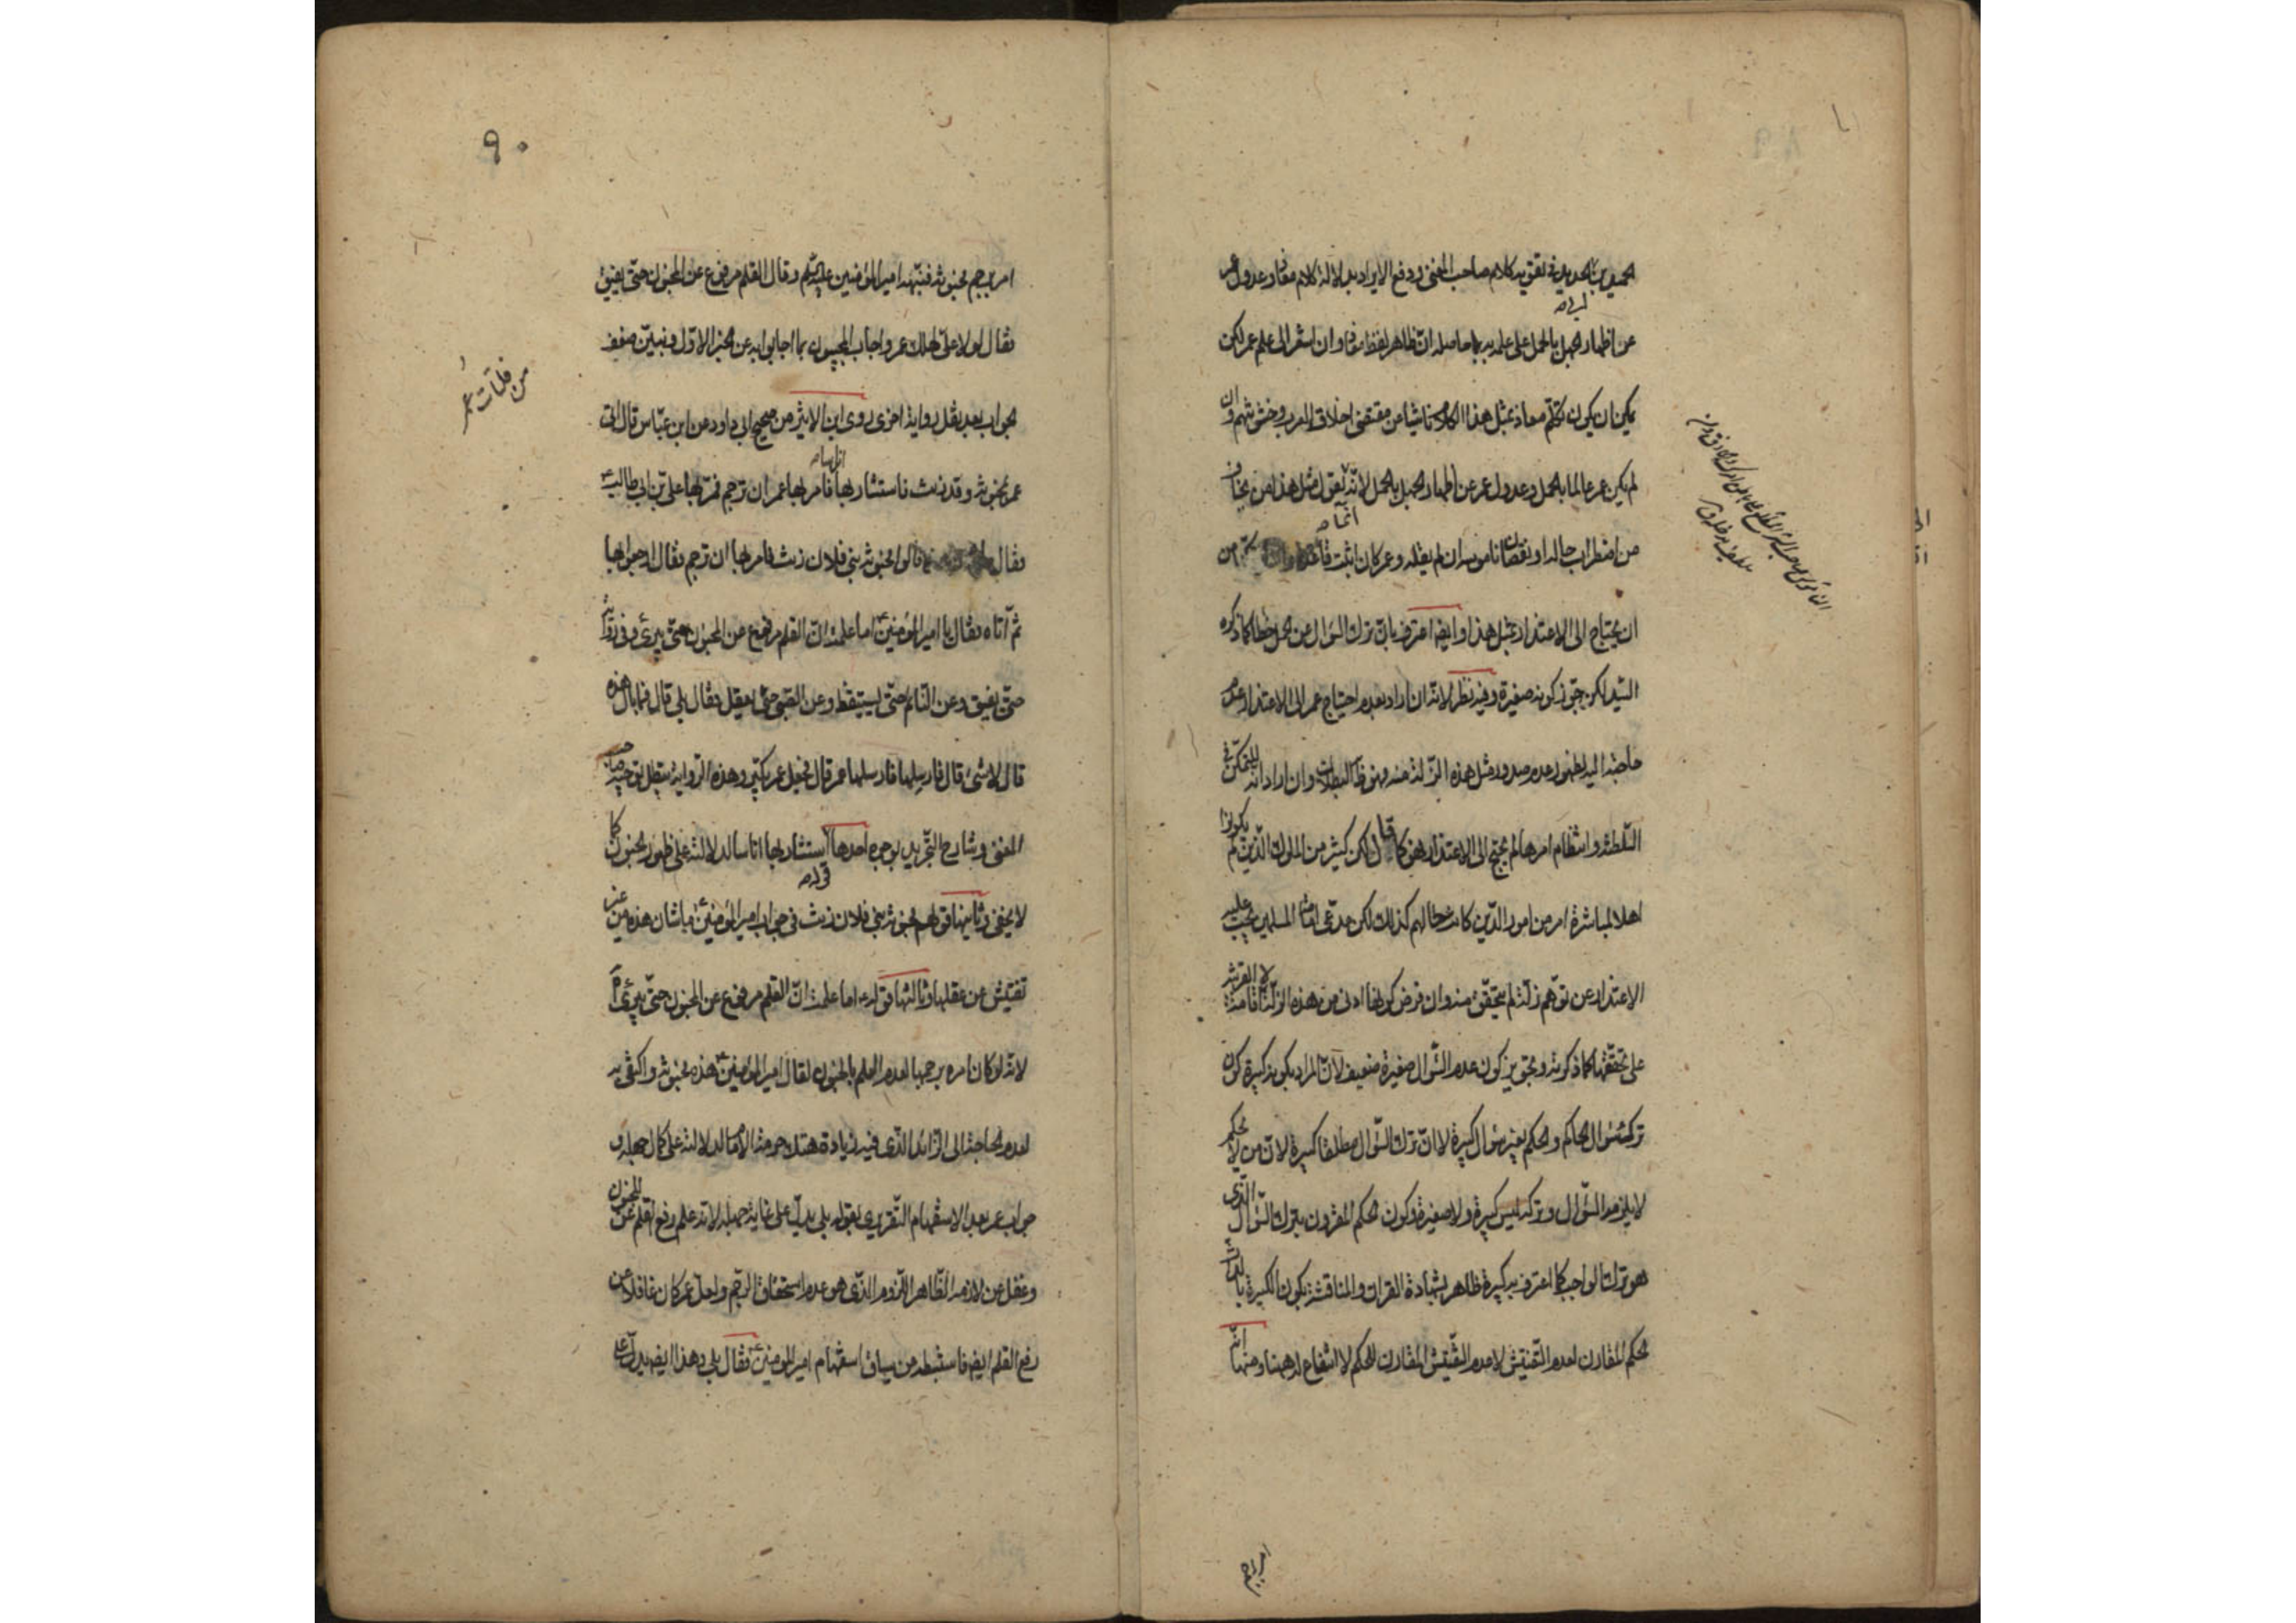 الحميد بن ابي الحديد في تقوية كلام صاحب المغني ودفع الايراد بدلالة كلام معاذ وعدول عمر
عن اظهار الجهل بالحمل على علمه به بما حاصله ان ظاهر لفظ معاذ وان اشعر الى علم عمر لكن
يمكن ان يكون تكلم معاذ بمثل هذا الكلام ناشيا من مقتضى اخلاق العرب وخشونتهم وان
لم يكن عمر عالما بالحمل وعدول عمر عن اظهار الجهل بالحمل لانه يقول مثل هذا من يخاف
من اضطراب حاله او نقصان ناموسه ان لم يقله وعمر كان اثبت من
ان يحتاج الى الاعتذار بمثل هذا وايضا اعترف بان ترك السؤال عن الحمل خطأ كما ذكره
السيد لكن جوز كونه صغيرة وفيه نظر لانه ان اراد بعدم احتياج عمر الى الاعتذار عدم
حاجته اليه لظهور عدم صدور مثل هذه الزلة منه فهو ظاهر البطلان وان اراد انه للتمكن في
السلطنة وانتظام امرها لم يحتج الى الاعتذار فهو كما قال لكن كثير من الملوك الذين لم يكونوا
اهلا لمباشرة امر من امور الدين كانت حالهم كذلك لكن مدعي امامة المسلمين يجب عليه
الاعتذار عن توهم زلة لم يتحقق منه وان فرض كونها ادنى من هذه الزلة لا القرينة
على تحققها كما ذكرته وتجويز كون عدم السؤال صغيرة ضعيف لان المراد بكونه كبيرة كون
ترك سؤال الحاكم والحكم بغير سؤال كبيرة لا ان ترك السؤال مطلقا كبيرة لان من لا يحكم
لا يلزمه السؤال وتركه ليس كبيرة ولا صغيرة وكون الحكم المقرون بترك السؤال الذي
هو ترك الواجب كما اعترف به كبيرة ظاهر بشهادة القرآن والمناقشة بكون الكبيرة بالذات
الحكم المقارن لعدم التفتيش لا عدم التفتيش المقارن للحكم لا انتفاع له هنا ومنها انه
امر برجم
٩٠
امر برجم مجنونة فنبهه امير المؤمنين عليه السلم وقال القلم مرفوع عن المجنون حتى يفيق
فقال لولا علي لهلك عمر واجاب المجيبون بما اجابوا به عن الخبر الاول ونبين ضعف
الجواب بعد نقل رواية اخرى روى ابن الاثير من صحيح ابي داود عن ابن عباس قال اتى
عمر بمجنونة وقد زنت فاستشار بها اناسا فامر بها عمران ترجم فمر بها علي بن ابي طالب ع
فقال قالوا مجنونة بني فلان زنت فامر بها ان ترجم فقال ارجعوا بها
ثم اتاه فقال يا امير المؤمنين اما علمت ان القلم مرفوع عن المجنون حتى يبرئ وفي رواية
حتى يفيق وعن النائم حتى يستيقظ وعن الصبي حتى يعقل فقال بلى قال فما بال هذه
قال لا شئ قال فارسلها فارسلها عمر قال فجعل عمر يكبر وهذه الرواية يبطل توجيه صاحب
المغني وشارح التجريد بوجوه احدها قوله استشار بها اناسا لدلالته على ظهور الجنون كما
لا يخفى وثانيها قولهم مجنونة بني فلان زنت في جواب امير المؤمنين ع ما شان هذه من غير
تفتيش عن عقلها وثالثها قوله ع اما علمت ان القلم مرفوع عن المجنون حتى يبرئ اه
لانه لو كان امره برجمها لعدم العلم بالجنون لقال امير المؤمنين ع هذه مجنونة واكتفى به
لعدم الحاجة الى الزائد الذي فيه زيادة هتك حرمة الامام لدلالته على كمال جهله و
جواب عمر بعد الاستفهام التقريري بقوله بلى يدل على غاية جهله لانه علم رفع القلم عن المجنون
وغفل عن لازمه الظاهر اللزوم الذي هو عدم استحقاق الرجم ولعل عمر كان غافلا عن
رفع القلم ايضا فاستنبطه من سياق استفهام امير المؤمنين ع فقال بلى وهذا ايضا يدل على
من فلتات عمر